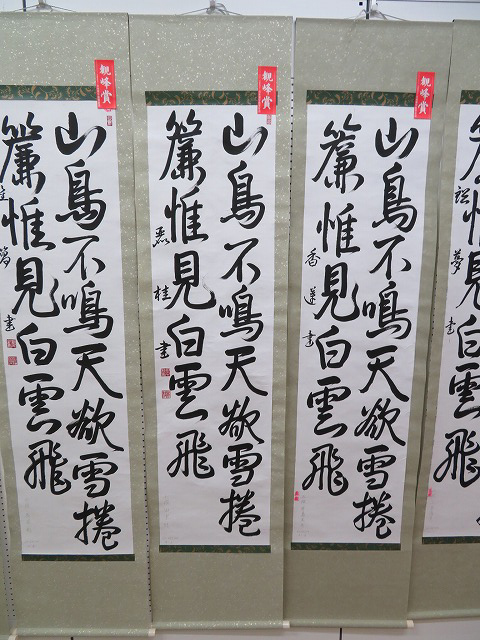 觀峰賞
山鳥不鳴天欲雪捲
簾惟見白雲飛
書
觀峰賞
山鳥不鳴天欲雪捲
簾惟見白雲飛
桂書
觀峰賞
山鳥不鳴天欲雪捲
簾惟見白雲飛
香蓮書
簾惟見白雲飛
夢書